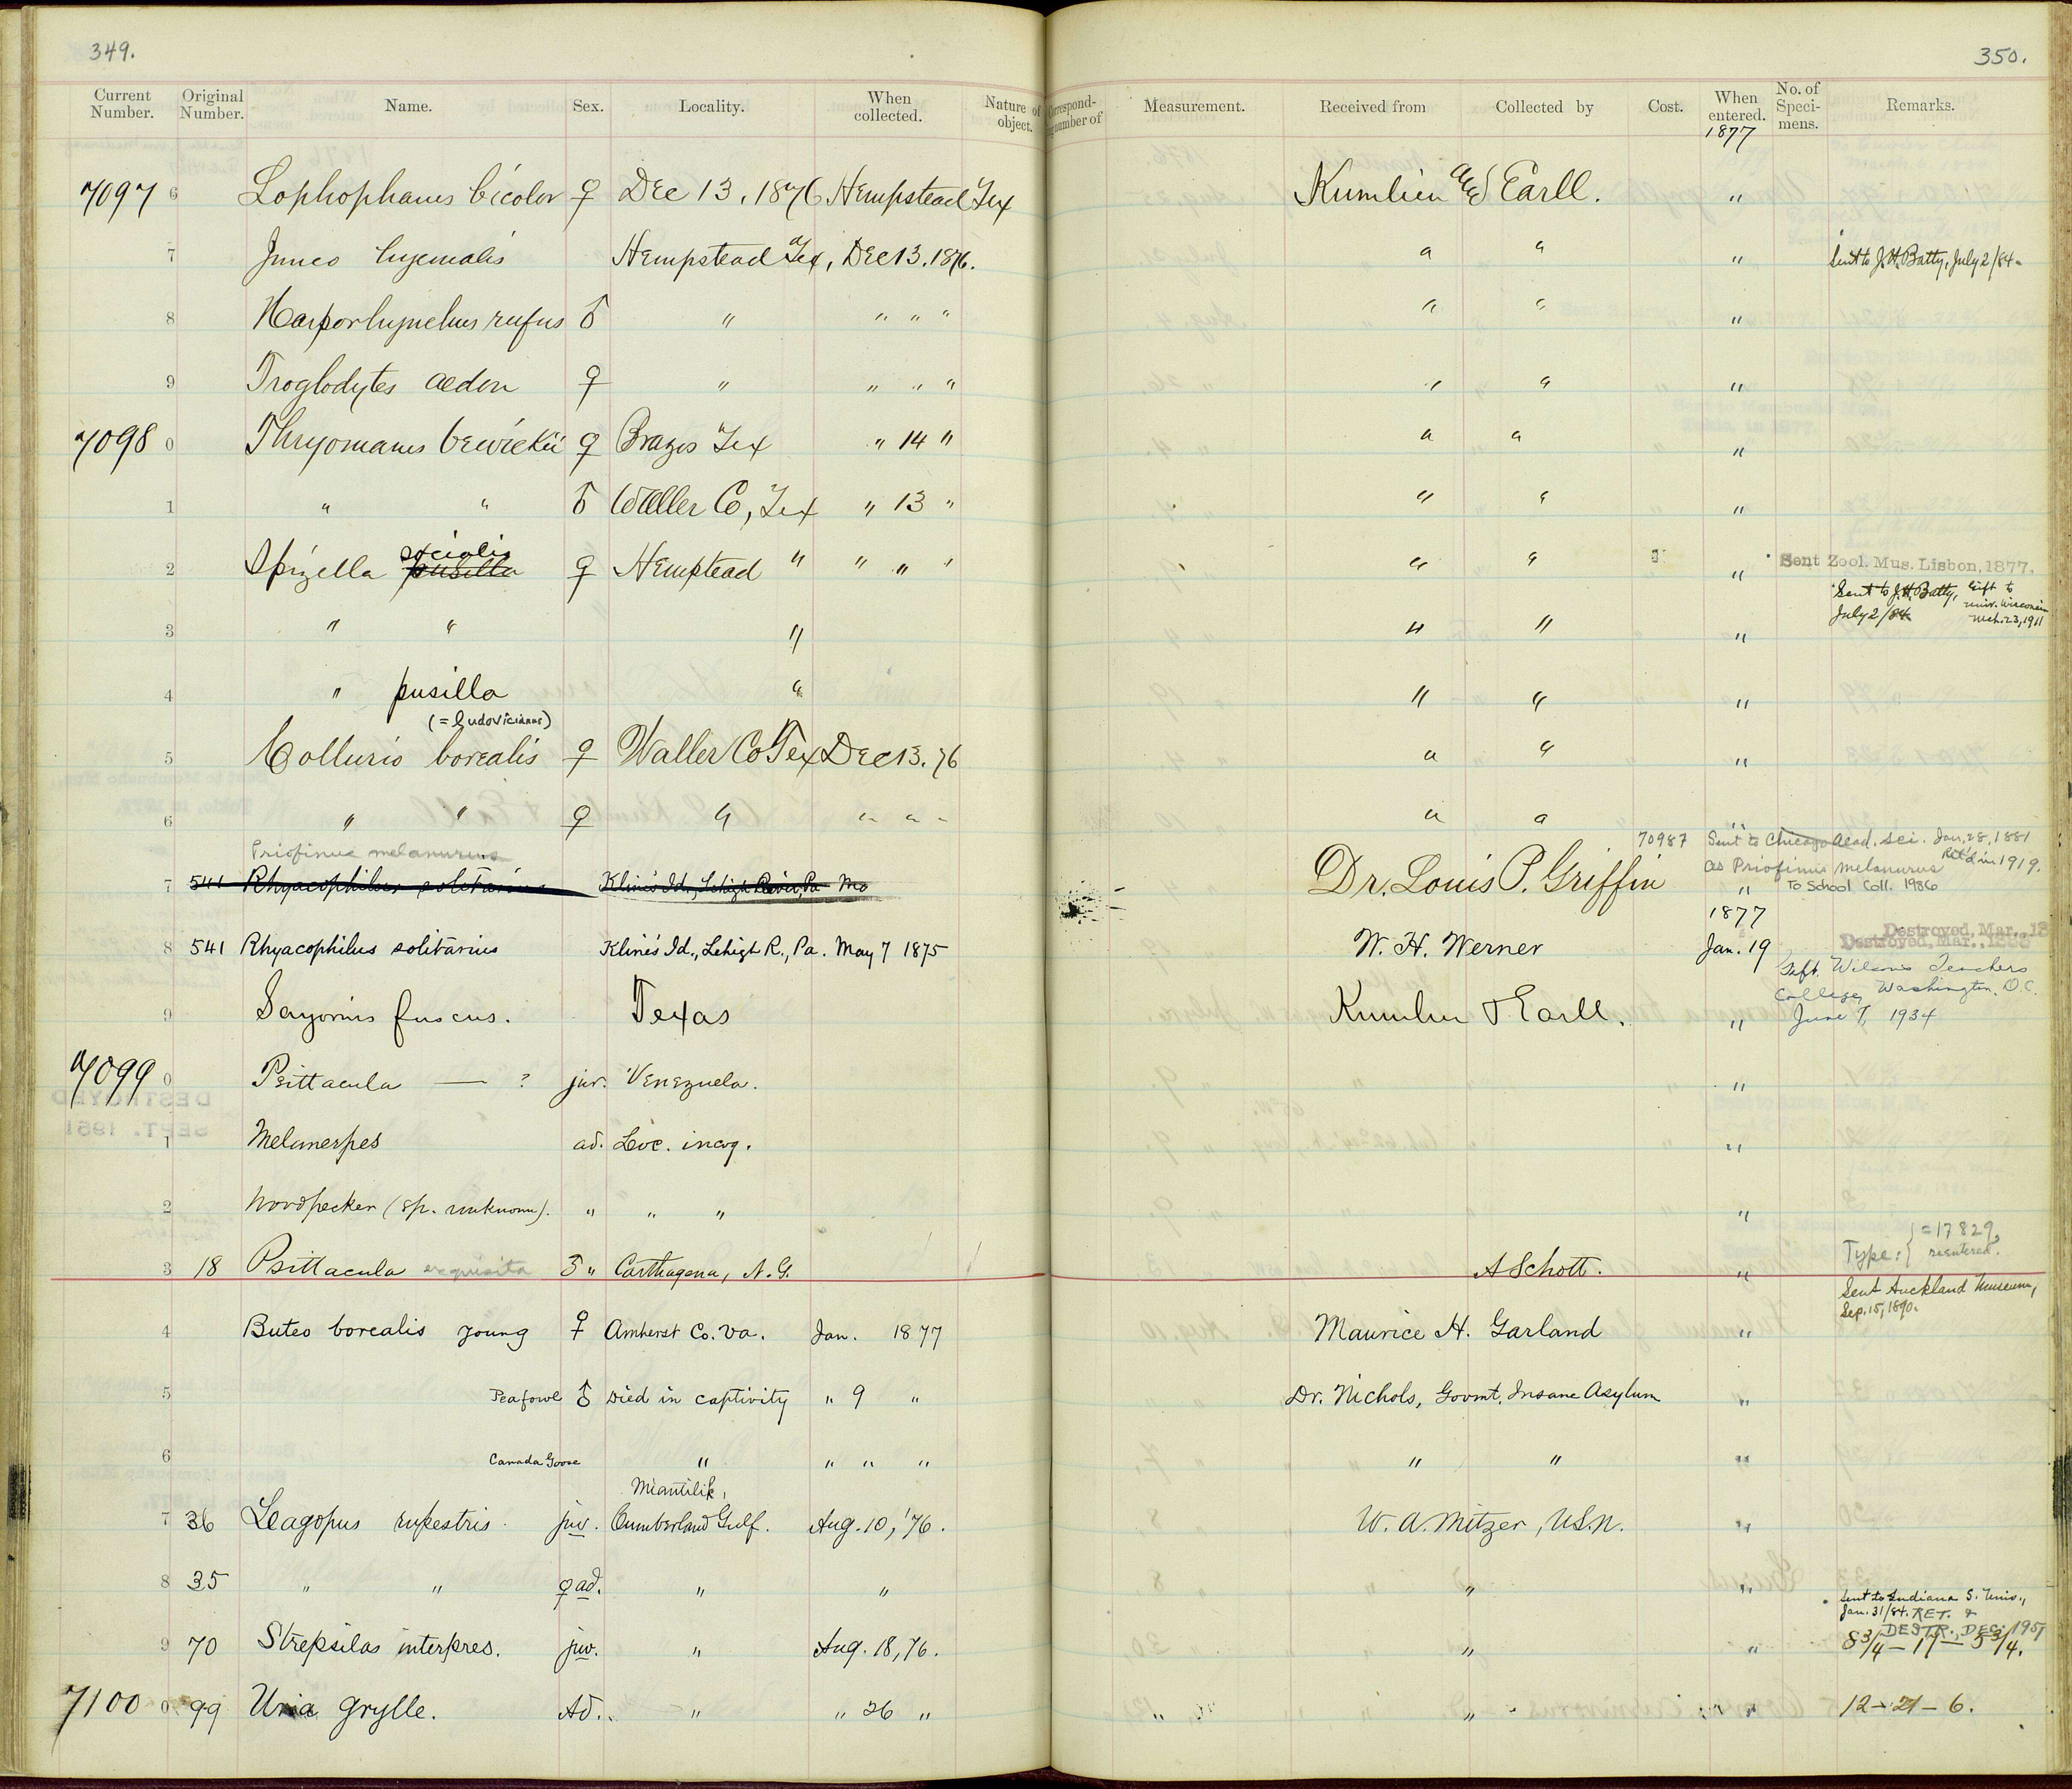 349.
350.
Current Number. Original Number. Name. Sex. Locality. When collected. Nature of object. Correspond- number of Measurement. Received from Collected by Cost. When entered. No. of Speci- mens. Remarks.
1877
7097 6 Lophophanes bicolor ♀ Dec 13, 1876 Hempstead Tex Kumlien and Earll. "
7 Junco hyemalis Hempstead Tex, Dec 13. 1876. " " " Sent to J.H. Batty, July 2/84.
8 Harporhynchus rufus ♂ " " " " " " "
9 Troglodytes aedon ♀ " " " " " " "
7098 0 Thryomanes bewickii ♀ Brazos Tex " 14 " " " "
1 " " ♂ Waller Co, Tex " 13 " " " "
2 Spizella pusilla socialis ♀ Hempstead " " " " " " " Sent Zool. Mus. Lisbon, 1877.
3 " " " " " " Sent to J.H. Batty, July 2/84 Gift to Univ. Wisconsin Mch. 23, 1911
4 " pusilla " " " "
(=ludovicianus)
5 Collurio borealis ♀ Waller Co Tex Dec 13. 76 " " "
6 " " ♀ " " " " " " "
Priofinus melanurus
7 541 Rhyacophilus solitarius Kline's Id., Lehigh River, Pa Ma Dr. Louis P. Griffin "
70987 Sent to Chicago Acad. Sci. Jan, 28, 1881
as Priofinus melanurus Ret'd in 1919.
To School Coll. 1936
1877
8 541 Rhyacophilus solitarius Kline's Id., Lehigh R., Pa. May 7 1875 W. H. Werner Jan. 19 Destroyed, Mar.,
9 Sayornis fuscus. Texas Kumlien & Earll. " Gift. Wilson Teachers College, Washington, D.C. June 7, 1934
7099 0 Psittacula — ? juv. Venezuela. "
1 Melanerpes ad. Loc. incog. "
2 Woodpecker (sp. unknown). " " " "
3 18 Psittacula exquisita ♂ " Carthagena, N.G. A Schott. " Type: = 17829, registered.
4 Buteo borealis young ♀ Amherst Co. Va. Jan. 1877 Maurice H. Garland " Sent Auckland Museum, Sep. 15, 1890.
5 Peafowl ♂ Died in captivity " 9 " Dr. Nichols, Govmt. Insane Asylum "
6 Canada Goose " " " " " " "
Miantilik,
7 36 Lagopus rupestris juv. Cumberland Gulf. Aug. 10, '76. W. A. Mitzer, U.S.N. "
8 35 " " ♀ ad. " " " "
9 70 Strepsilas interpres. juv. " Aug. 18, 76. " " Sent to Indiana S. Univ., Jan. 31/84. RET. & DESTR., DEC. 1951
8 3/4 — 17 — 5 3/4.
7100 0 99 Uria grylle. Ad. " " 26 " " " 12 — 21 — 6.